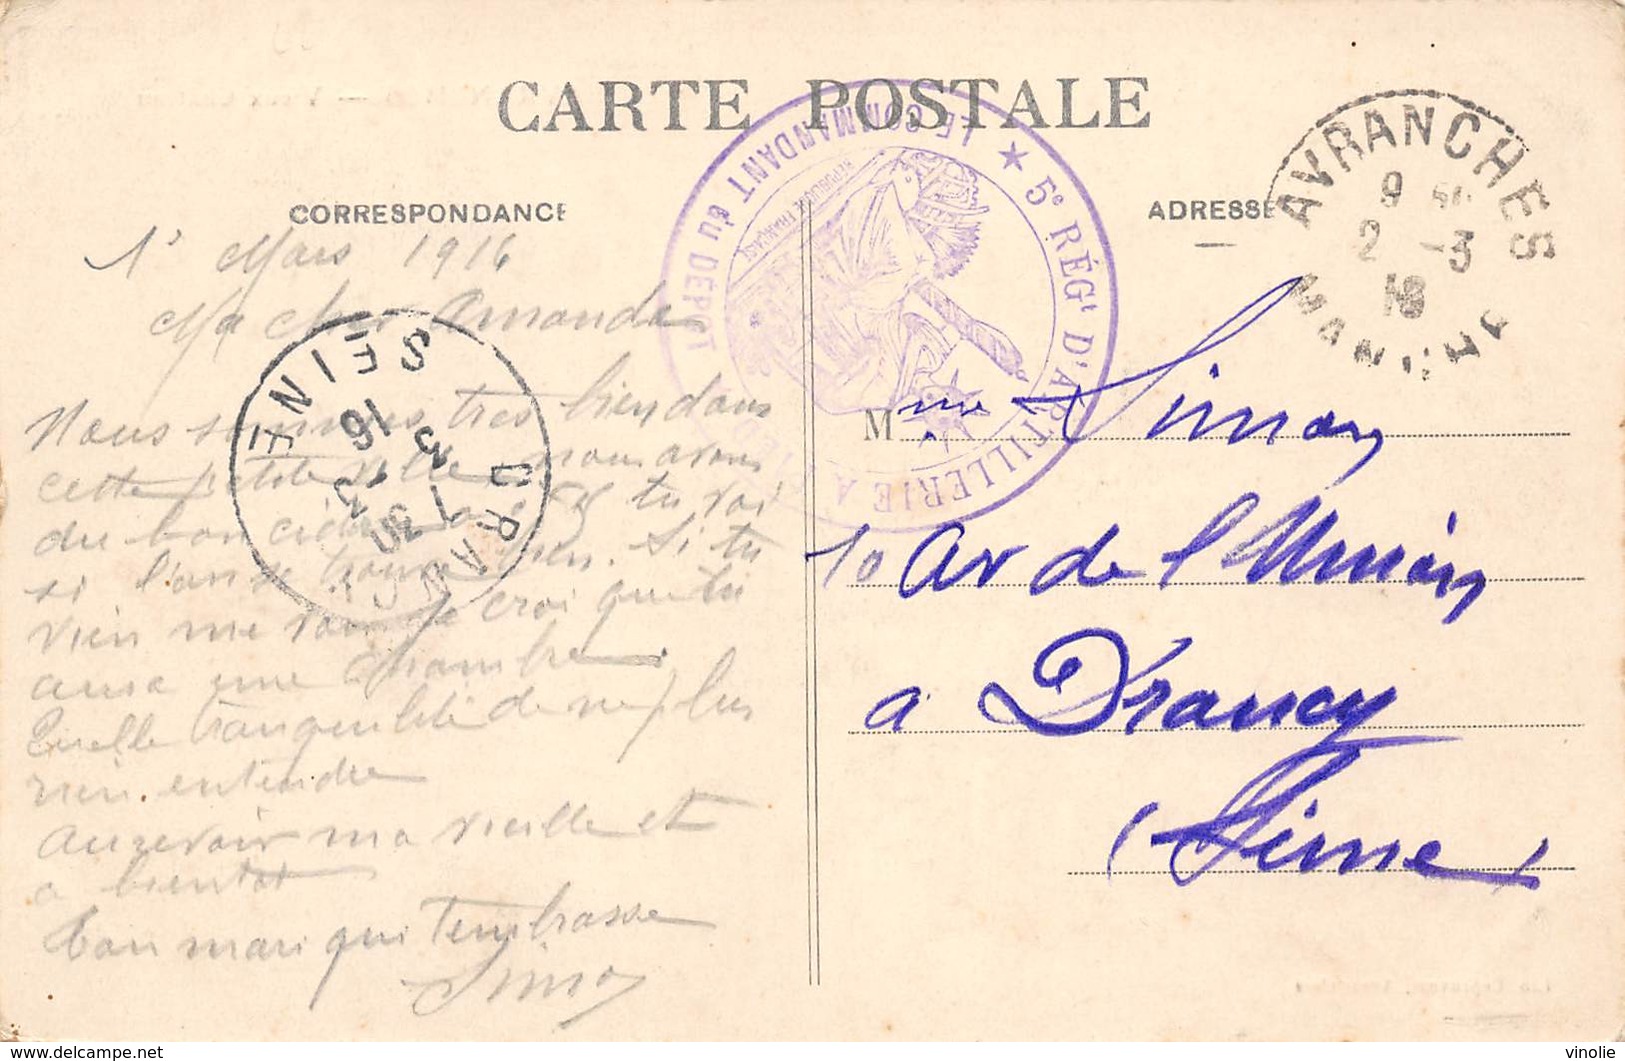 CARTE POSTALE
CORRESPONDANCE
ADRESSE
1r Mars 1916
Ma cher Amande
Nous sommes tres bien dans
cette petite ville nous avons
du bon cidre a tu voi
si l'on se trouve bien. Si tu
vien me voir je croi que tu
aura une chambre
Quelle tranquilité de ne plus
rien entendre
Aurevoir ma vieille et
a bientot
Ton mari qui t'embrasse
Simon
5e RÉGt D'ARTILLERIE A PIED
LE COMMANDANT du DÉPOT
RÉPUBLIQUE FRANÇAISE
AVRANCHES
9
2 -3
16
MANCHE
DRANCY
7 30
3 - 3
16
SEINE
Mme Simon
10 Av de l'Union
a Drancy
(Seine)
delcampe.net
vinolie